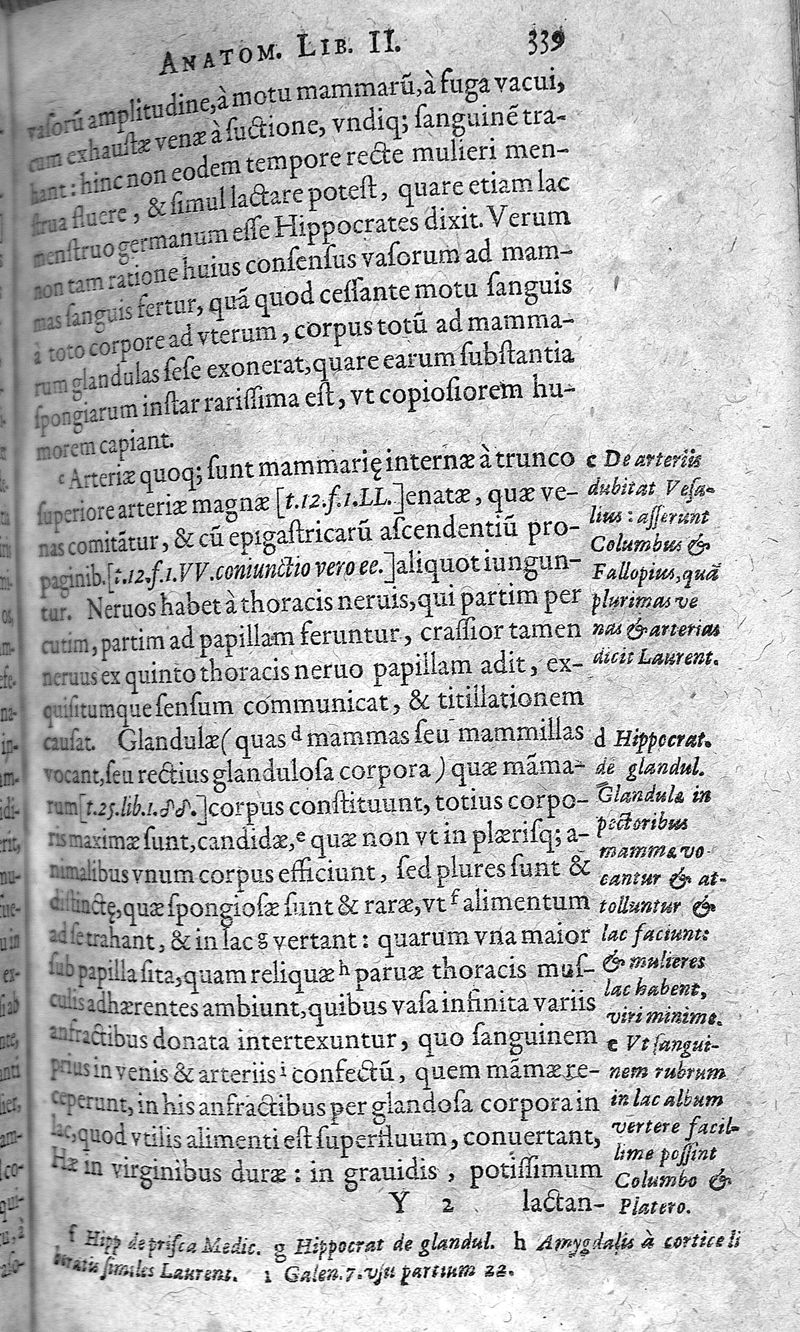 ANATOM. LIB. II. 339
vasorũ amplitudine, à motu mammarũ, à fuga vacui,
cum exhaustæ venæ à suctione, vndiq; sanguinẽ tra-
hant: hinc non eodem tempore recte mulieri men-
strua fluere, & simul lactare potest, quare etiam lac
menstruo germanum esse Hippocrates dixit. Verum
non tam ratione huius consensus vasorum ad mam-
mas sanguis fertur, quã quod cessante motu sanguis
à toto corpore ad vterum, corpus totũ ad mamma-
rum glandulas sese exonerat, quare earum substantia
spongiarum instar rarissima est, vt copiosiorem hu-
morem capiant.
c Arteriæ quoq; sunt mammarię internæ à trunco
superiore arteriæ magnæ [t.12.f.1.LL.] enatæ, quæ ve-
nas comitãtur, & cũ epigastricarũ ascendentiũ pro-
paginib. [t.12.f.1.VV. coniunctio vero ee.] aliquot iungun-
tur. Neruos habet à thoracis neruis, qui partim per
cutim, partim ad papillam feruntur, crassior tamen
neruus ex quinto thoracis neruo papillam adit, ex-
quisitumque sensum communicat, & titillationem
causat. Glandulæ ( quas d mammas seu mammillas
vocant, seu rectius glandulosa corpora ) quæ mãma-
rum [t.25.lib.1.δδ.] corpus constituunt, totius corpo-
ris maximæ sunt, candidæ, e quæ non vt in plærisq; a-
nimalibus vnum corpus efficiunt, sed plures sunt &
distinctę, quæ spongiosæ sunt & raræ, vt f alimentum
ad se trahant, & in lac g vertant: quarum vna maior
sub papilla sita, quam reliquæ h paruæ thoracis mus-
culis adhærentes ambiunt, quibus vasa infinita variis
anfractibus donata intertexuntur, quo sanguinem
prius in venis & arteriis i confectũ, quem mãmæ re-
ceperunt, in his anfractibus per glandosa corpora in
lac, quod vtilis alimenti est superfluum, conuertant,
Hæ in virginibus duræ: in grauidis, potissimum
Y 2 lactan-
c De arteriis
dubitat Vesa-
lius: asserunt
Columbus &
Fallopius, quã
plurimas ve
nas & arterias
dicit Laurent.
d Hippocrat.
de glandul.
Glandulæ in
pectoribus
mammæ vo-
cantur & at-
tolluntur &
lac faciunt:
& mulieres
lac habent,
viri minime.
e Vt sangui-
nem rubrum
in lac album
vertere facil-
lime possint
Columbo &
Platero.
f Hipp de prisca Medic. g Hippocrat de glandul. h Amygdalis à cortice li
beratis similes Laurent. i Galen. 7. vsu partium 22.